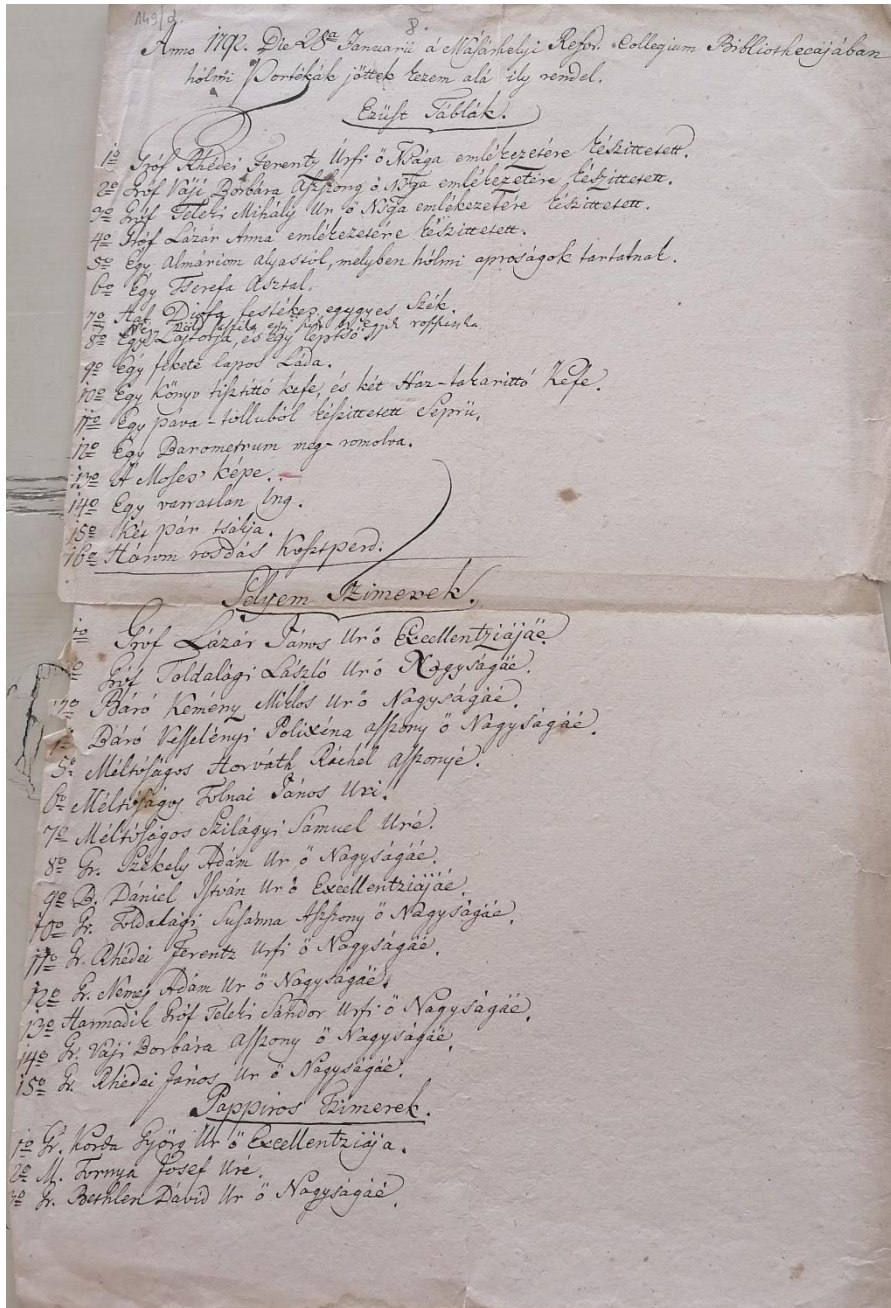 149/d.
8.
Anno 1792. Die 28a Januarii á Vásárhelyi Refor. Collegium Bibliothecájában
hólmi Portékák jöttek kezem alá ily rendel.
Ezüst Táblák.
1o Gróf Rhédei Ferentz Urfi ö Nsága emlékezetére készíttetett.
2o Gróf Váji Borbára Aszszony ö Nsga emlékezetére készíttetett.
3o Gróf Teleki Mihály Ur ö Nsga emlékezetére készíttetett.
4o Gróf Lázár Anna emlékezetére készíttetett.
5o Egy Almáriom alyastól, melyben hólmi apróságok tartatnak.
6o Egy Tserefa Asztal.
7o Hat Diófa festékes egygyes Szék.
8o Egy Lajtorja, és egy léptsö.
9o Egy fekete lapos Láda.
10o Egy Könyv tisztittó kefe, és két Ház-takarittó Kefe.
11o Egy páva-tolluból készíttetett Seprü.
12o Egy Barometrum meg-romolva.
13o A' Moses' képe.
14o Egy varratlan Ing.
15o Két pár tsákja.
16o Három rosdás Kosztperd.
Selyem Tzimerek.
1o Gróf Lázár János Ur ö Excellentziájáé
Gróf Toldalági László Ur ö Nagyságáé.
Báró Kemény Miklos Ur ö Nagyságáé.
Báró Vesselényi Polixéna aszszony ö Nagyságáé.
5o Méltóságos Horváth Ráchel aszszonyé.
6o Méltóságos Tolnai János Uri.
7o Méltóságos Szilágyi Sámuel Uré.
8o Gr. Székely Ádám Ur ö Nagyságáé.
9o B. Dániel István Ur ö Excellentziájáé.
10o Gr. Toldalági Susánna Aszszony ö Nagyságáé.
11o Gr. Rhédei Ferentz Urfi ö Nagyságáé.
12o Gr. Nemes Ádám Ur ö Nagyságáé.
13o Harmadik Gróf Teleki Sándor Urfi ö Nagyságáé.
14o Gr. Váji Borbára aszszony ö Nagyságáé.
15o Gr. Rhédei János Ur ö Nagyságáé.
Pappiros Tzimerek.
1o Gr. Korda György Ur ö Excellentziája.
2o M. Fornya Josef Uré.
3o Gr. Bethlen Dávid Ur ö Nagyságáé.